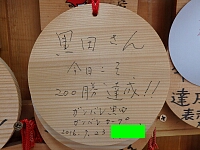 黒田さん
今日こそ
200勝達成!!
ガンバレ黒田
ガンバレカープ
2016.7.23
達成